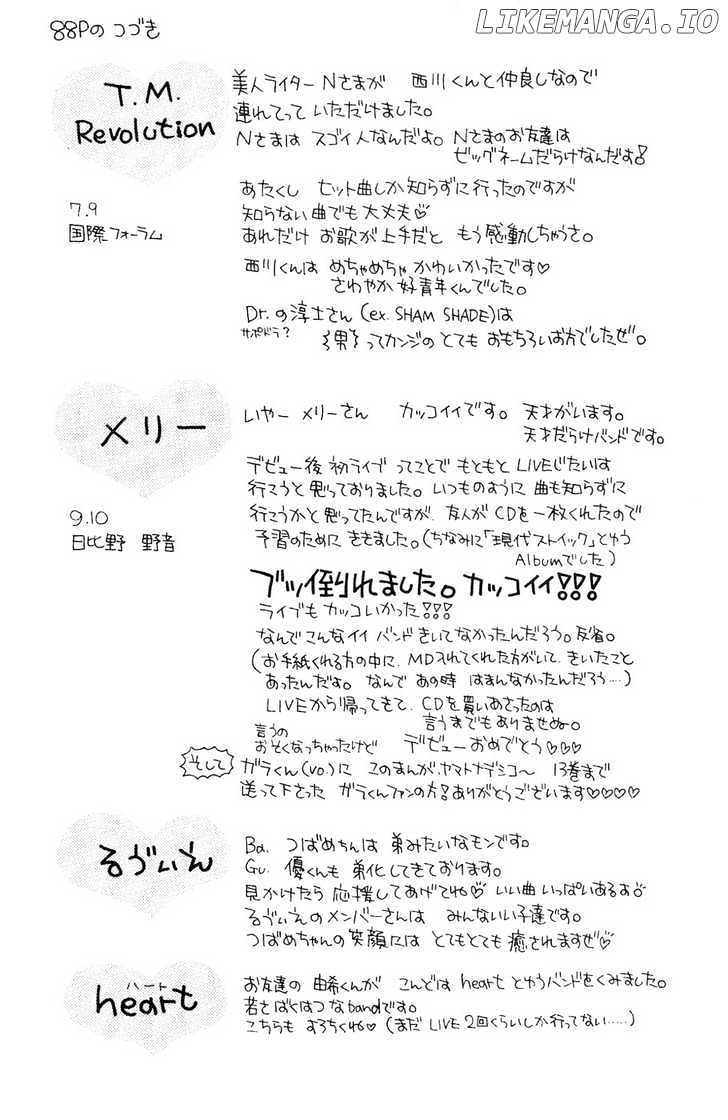 LIKEMANGA.IO
88Pの つづき
T.M.
Revolution
7.9
国際フォーラム
美人ライター Nさまが 西川くんと仲良しなので
連れてって いただけました。
Nさまは スゴイ人なんだよ。Nさまのお友達は
ビッグネームだらけなんだよ!
あたくし セット曲しか知らずに行ったのですが
知らない曲でも大丈夫♡
あれだけ お歌が上手だと もう感動しちゃうさ。
西川くんは めちゃめちゃ かわいかったです♡
さわやか 好青年くんでした。
Dr.の淳士さん (ex. SHAM SHADE)は
サポドラ?
男 ってカンジの とても おもちろいお方でしたぜ。
メリー
9.10
日比野 野音
いやー メリーさん カッコイイです。天才がいます。
天才だらけバンドです。
デビュー後 初ライブ ってことで もともと LIVEじたいは
行こうと思っておりました。いつものように 曲も知らずに
行こうかと思ってたんですが、友人が CDを一枚くれたので
予習のために ききました。(ちなみに「現代ストイック」とゆう
Albumでした)
ブッ倒れました。カッコイイ!!!
ライブも カッコいかった!!!
なんで こんなイイ バンド きいてなかったんだろう。反省。
(お手紙くれる方の中に、MD入れてくれた方がいて、きいたこと
あったんだよ。なんで あの時 はまんなかったんだろう....)
LIVEから帰ってきて、CDを買いあさったのは
言うまでもありませぬ。
言うの
おそくなっちゃったけど デビューおめでとう♡♡♡
そして
ガラくん(vo.)に このまんが、ヤマトナデシコ〜 13巻まで
送って下さった ガラくんファンの方!ありがとうございます♡♡♡♡
るゔぃえ
Ba. つばめちんは 弟みたいなモンです。
Gu. 優くんも 弟化してきております。
見かけたら 応援してあげてね♡ いい曲いっぱいあるよ♡
るゔぃえのメンバーさんは みんないい子達です。
つばめちゃんの笑顔には とてもとても 癒されますぜ♡
ハート
heart
お友達の 由希くんが こんどは heart とゆうバンドをくみました。
若さばくはつなbandです。
こちらも よろちくね♡ (まだ LIVE 2回くらいしか行ってない.....)